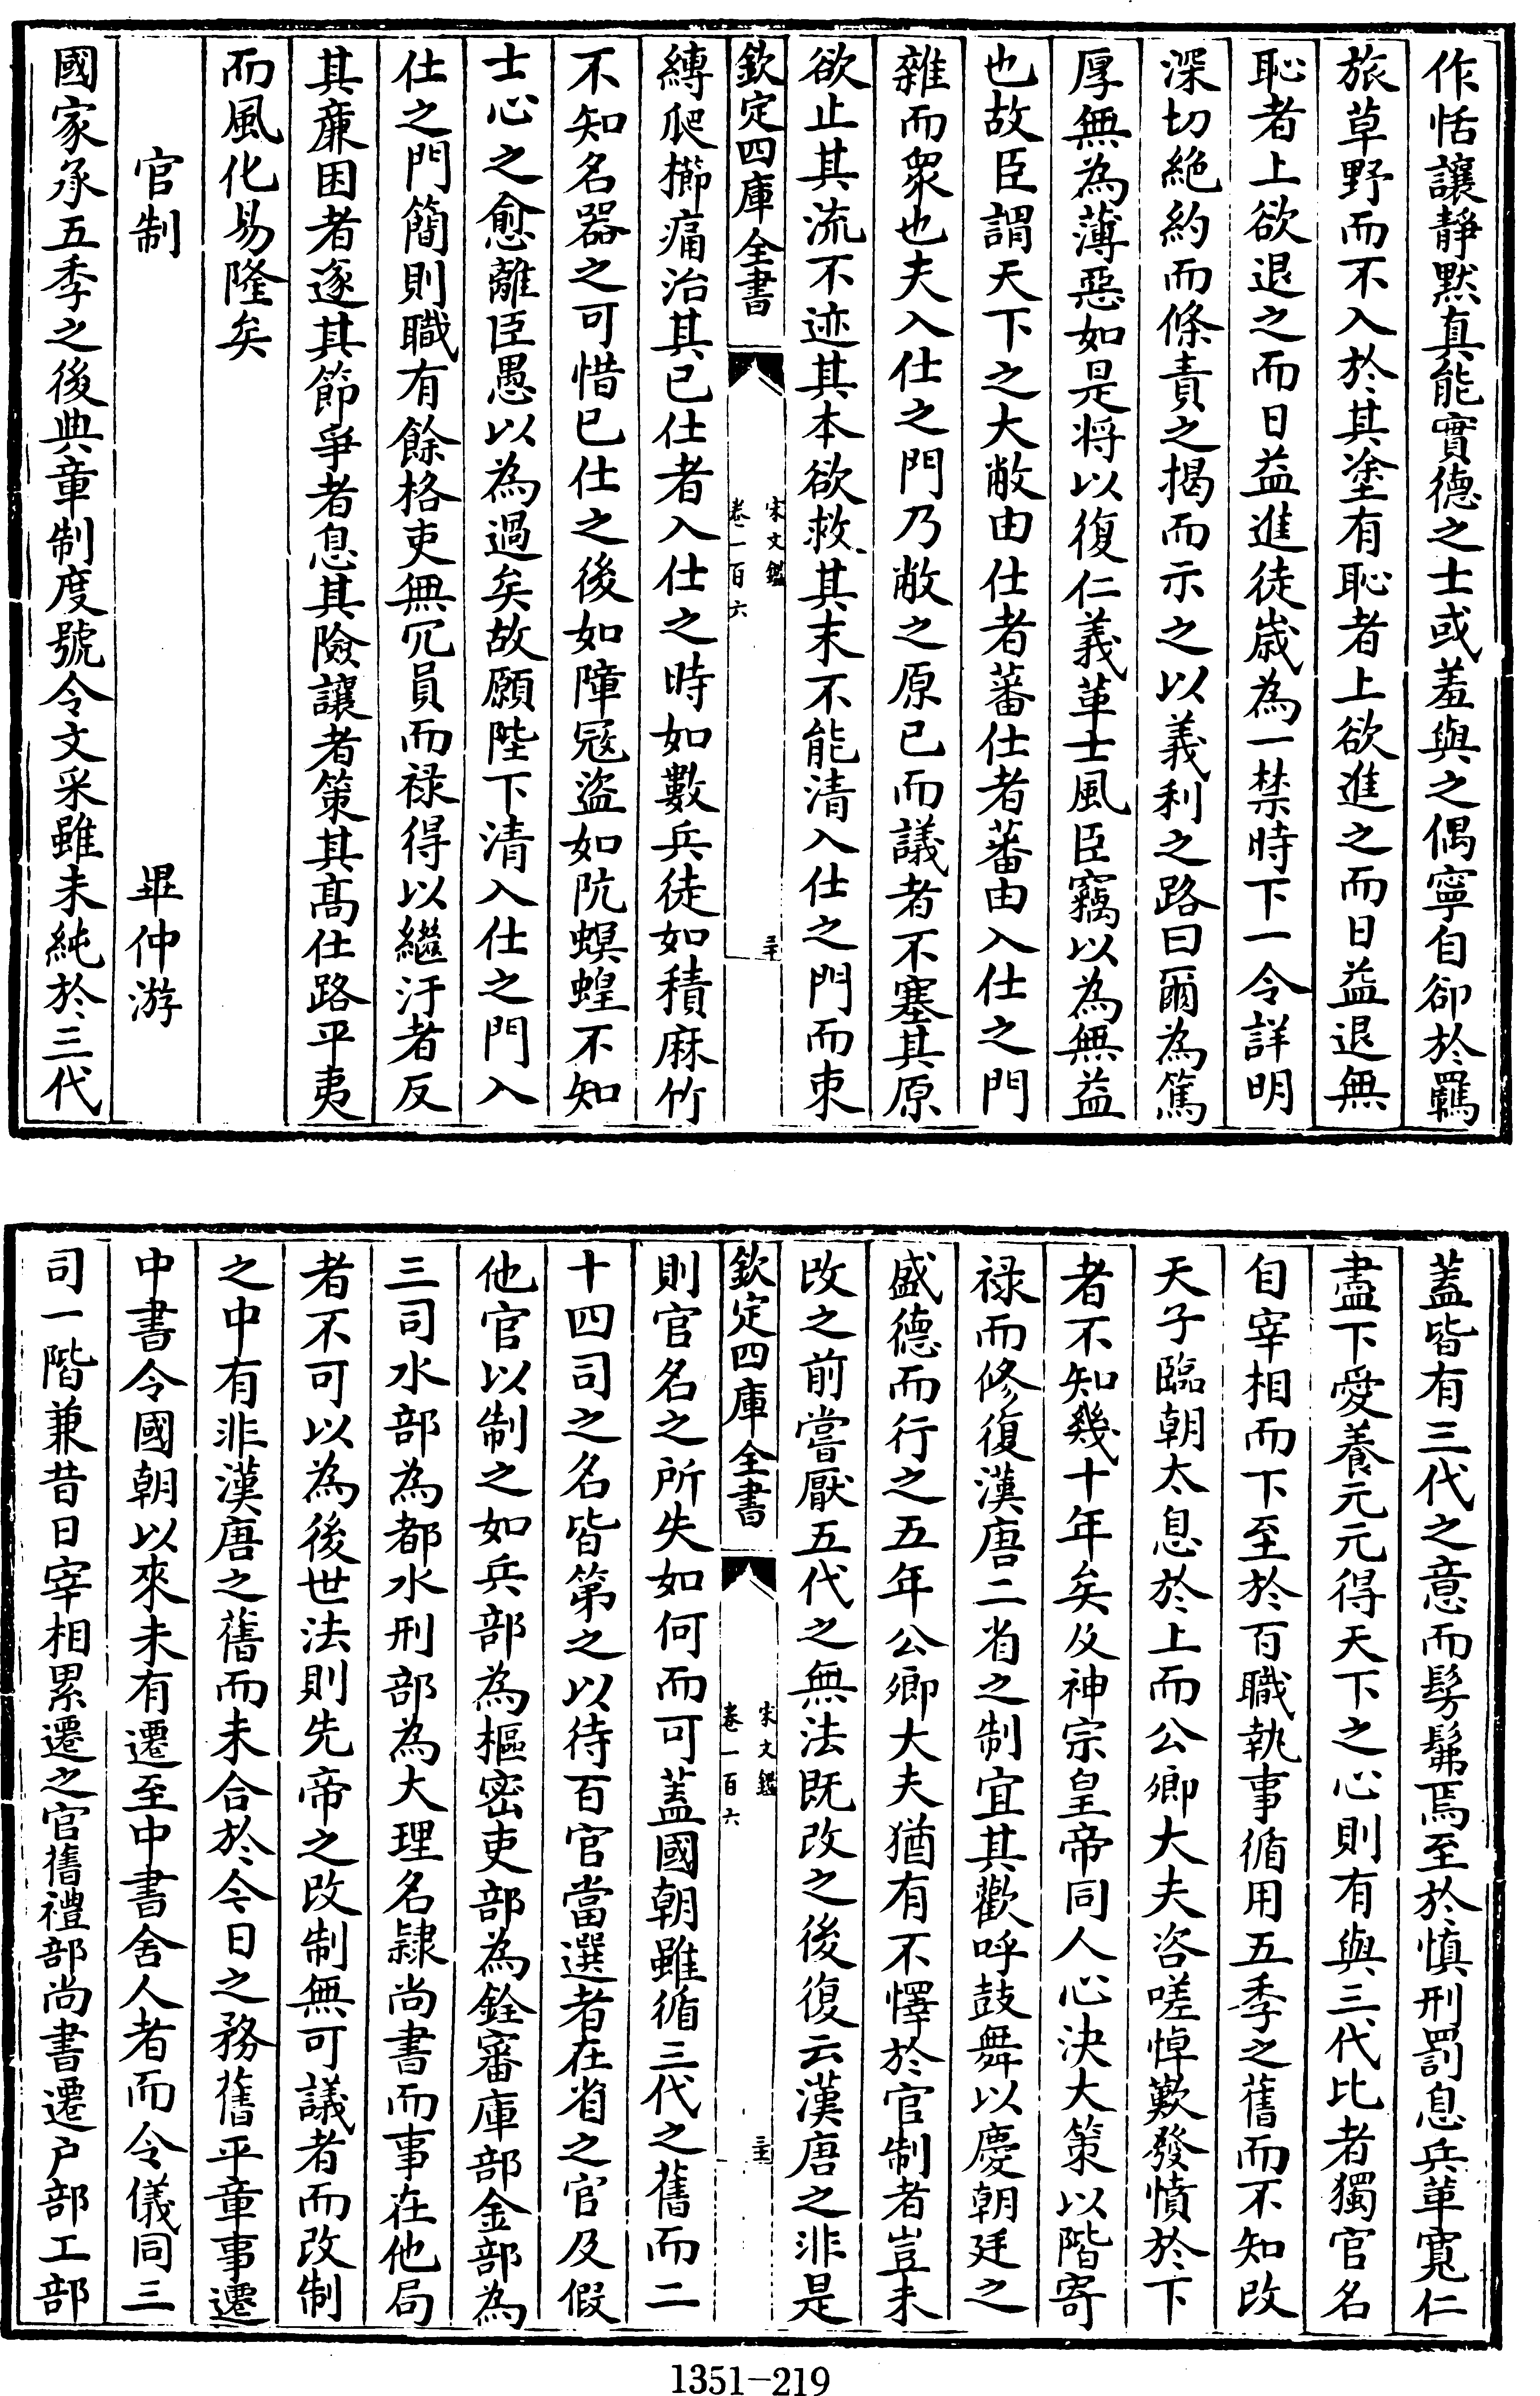 作恬讓靜默真能實德之士或羞與之偶寧自卻於羈
旅草野而不入於其塗有恥者上欲進之而日益退無
恥者上欲退之而日益進徒歲為一禁時下一令詳明
深切絶約而條責之揭而示之以義利之路曰爾為篤
厚無為薄惡如是将以復仁義革士風臣竊以為無益
也故臣謂天下之大敝由仕者蕃仕者蕃由入仕之門
雜而衆也夫入仕之門乃敝之原已而議者不塞其原
欲止其流不迹其本欲救其末不能清入仕之門而束
欽定四庫全書
宋文鑑
卷一百六
三十
縛爬櫛痛治其已仕者入仕之時如數兵徒如積麻竹
不知名器之可惜已仕之後如障冦盜如阬螟蝗不知
士心之愈離臣愚以為過矣故願陛下清入仕之門入
仕之門簡則職有餘格吏無冗員而禄得以繼汙者反
其廉困者逐其節爭者息其險讓者策其髙仕路平夷
而風化易隆矣
官制
畢仲游
國家承五季之後典章制度號令文采雖未純於三代
蓋皆有三代之意而髣髴焉至於慎刑罰息兵革寛仁
盡下愛養元元得天下之心則有與三代比者獨官名
自宰相而下至於百職執事循用五季之舊而不知改
天子臨朝太息於上而公卿大夫咨嗟悼歎發憤於下
者不知幾十年矣及神宗皇帝同人心決大策以階寄
禄而修復漢唐二省之制宜其歡呼鼓舞以慶朝廷之
盛德而行之五年公卿大夫猶有不懌於官制者豈未
改之前嘗厭五代之無法既改之後復云漢唐之非是
欽定四庫全書
宋文鑑
卷一百六
三十一
則官名之所失如何而可蓋國朝雖循三代之舊而二
十四司之名皆第之以待百官當選者在省之官及假
他官以制之如兵部為樞密吏部為銓審庫部金部為
三司水部為都水刑部為大理名隷尚書而事在他局
者不可以為後世法則先帝之改制無可議者而改制
之中有非漢唐之舊而未合於今日之務舊平章事遷
中書令國朝以來未有遷至中書舍人者而令儀同三
司一階兼昔日宰相累遷之官舊禮部尚書遷户部工部
1351-219